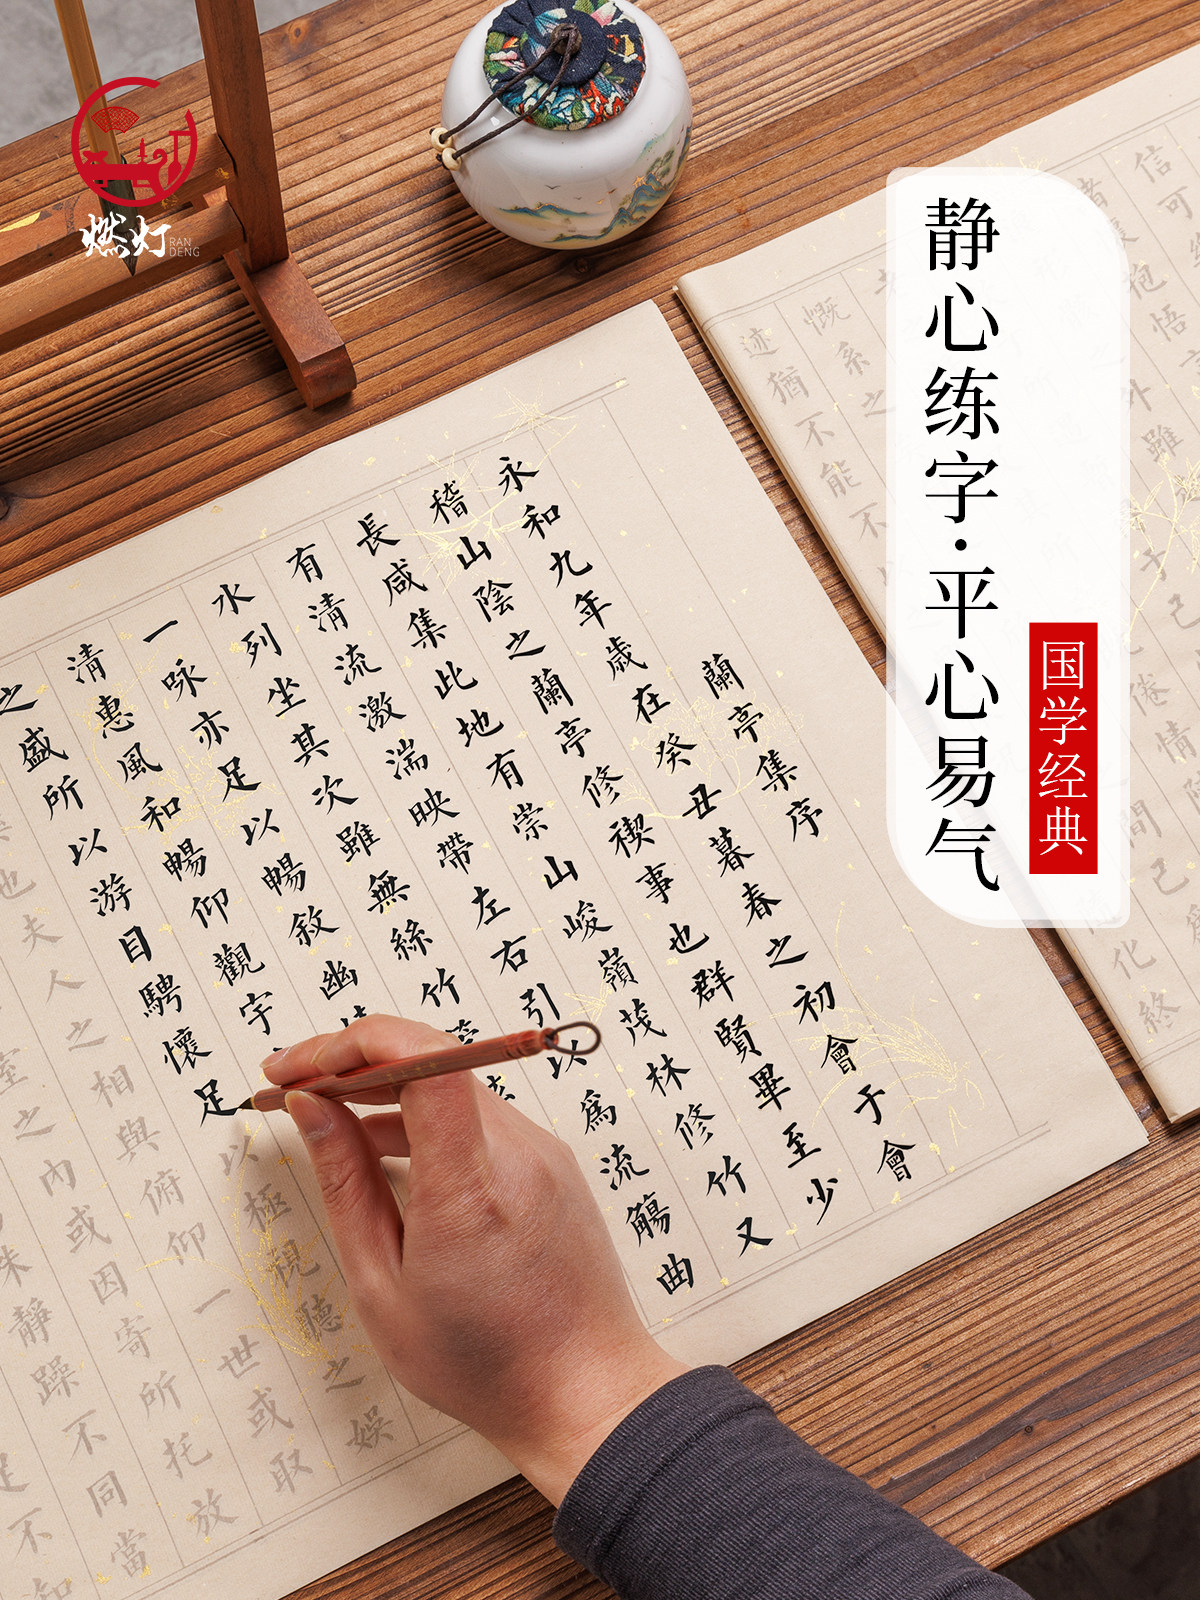 燃灯
RAN
DENG
静心练字·平心易气
国学经典
蘭亭集序
永和九年歲在癸丑暮春之初會于會
稽山陰之蘭亭修禊事也群賢畢至少
長咸集此地有崇山峻嶺茂林修竹又
有清流激湍映帶左右引以爲流觴曲
水列坐其次雖無絲竹
一咏亦足以暢敘幽
清惠風和暢仰觀宇
之盛所以游目騁懷足以極視聽之娱
也夫人之相與俯仰一世或取
室之內或因寄所托放
殊靜躁不同當
足不知
信可
懷抱悟
外雖
于己
倦情
間己爲
化終
慨系之
迹猶不能不